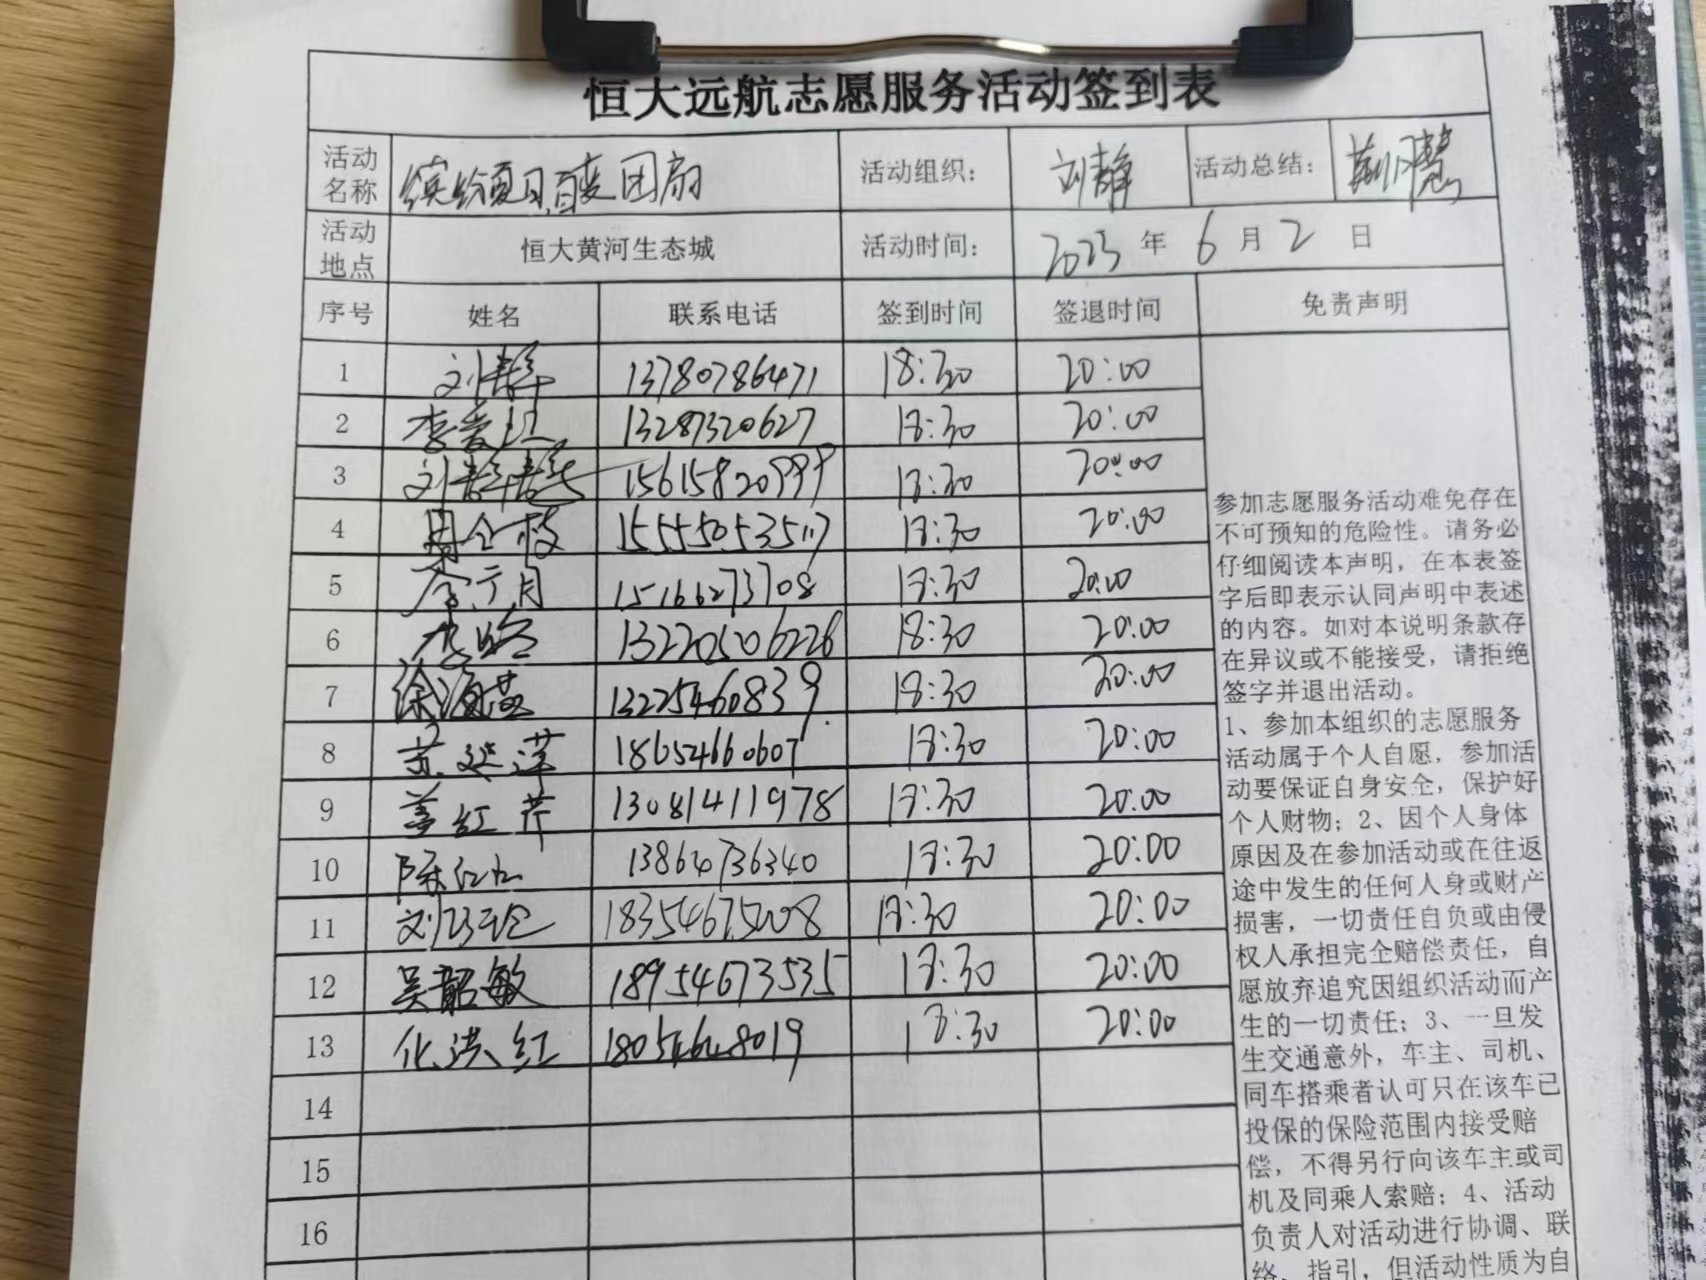 恒大远航志愿服务活动签到表
活动名称 缤纷夏日,百变团扇 活动组织: 刘静 活动总结:
活动地点 恒大黄河生态城 活动时间: 2023 年 6 月 2 日
序号 姓名 联系电话 签到时间 签退时间 免责声明
1 刘静 13780786471 18:30 20:00
2 李爱红 13287320627 18:30 20:00
3 15615820999 18:30 20:00
4 周全枝 18:30 20:00
5 15166273708 18:30 20:00
6 13220506226 18:30 20:00
7 徐海燕 13225460839 18:30 20:00
8 18654660607 18:30 20:00
9 姜红芹 13081411978 18:30 20:00
10 陈红 13864736340 18:30 20:00
11 18:30 20:00
12 吴韶敏 18954673535 18:30 20:00
13 化洪红 18054648019 18:30 20:00
14
15
16
参加志愿服务活动难免存在
不可预知的危险性。请务必
仔细阅读本声明，在本表签
字后即表示认同声明中表述
的内容。如对本说明条款存
在异议或不能接受，请拒绝
签字并退出活动。
1、参加本组织的志愿服务
活动属于个人自愿，参加活
动要保证自身安全，保护好
个人财物；2、因个人身体
原因及在参加活动或在往返
途中发生的任何人身或财产
损害，一切责任自负或由侵
权人承担完全赔偿责任，自
愿放弃追究因组织活动而产
生的一切责任；3、一旦发
生交通意外，车主、司机、
同车搭乘者认可只在该车已
投保的保险范围内接受赔
偿，不得另行向该车主或司
机及同乘人索赔；4、活动
负责人对活动进行协调、联
络、指引，但活动性质为自